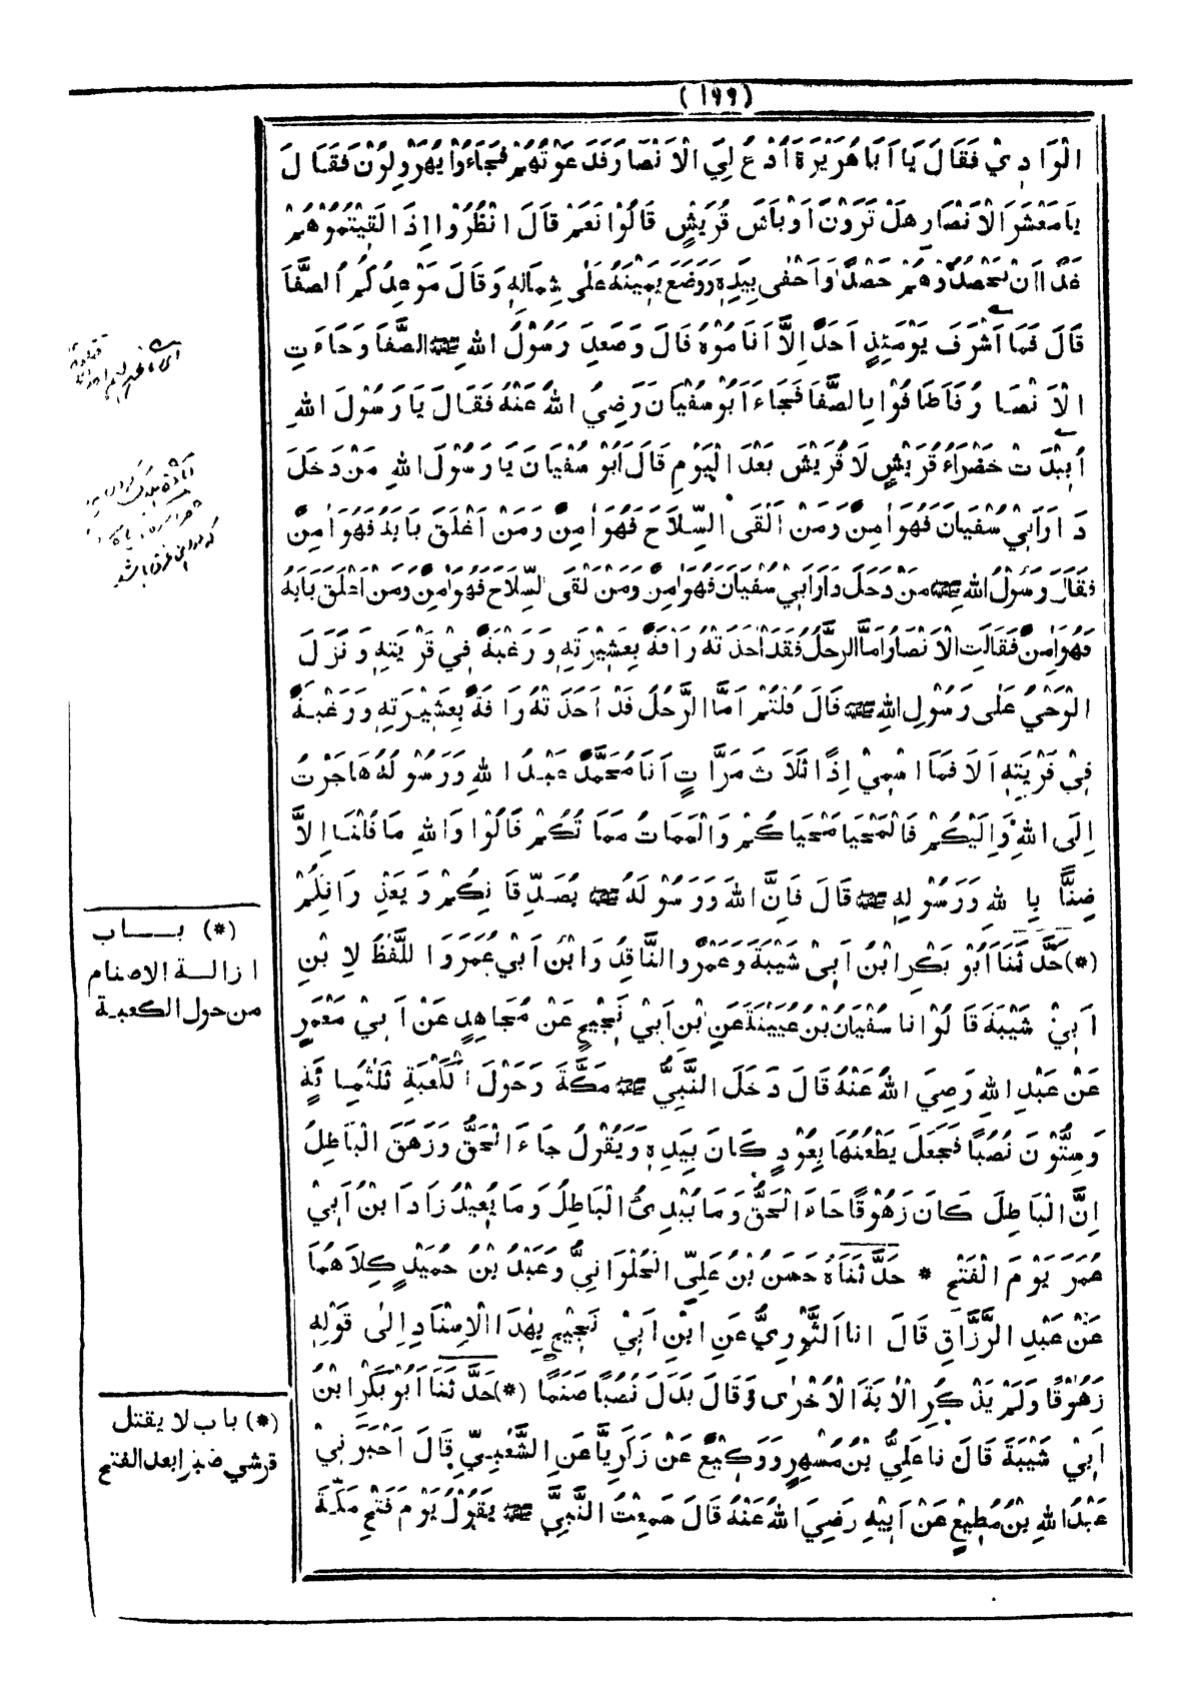 (١٩٩)
الْوَادِيْ فَقَالَ يَا اَبَا هُرَيْرَةَ اُدْعُ لِيَ الْاَنْصَارَ فَدَعَوْتُهُمْ فَجَاءُوْا يُهَرْوِلُوْنَ فَقَالَ
يَا مَعْشَرَ الْاَنْصَارِ هَلْ تَرَوْنَ اَوْبَاشَ قُرَيْشٍ قَالُوْا نَعَمْ قَالَ انْظُرُوْا اِذَا لَقِيْتُمُوْهُمْ
غَدًا اَنْ تَحْصُدُوْهُمْ حَصْدًا وَاَحْفٰى بِيَدِهٖ وَوَضَعَ يَمِيْنَهُ عَلٰى شِمَالِهٖ وَقَالَ مَوْعِدُكُمُ الصَّفَا
قَالَ فَمَا اَشْرَفَ يَوْمَئِذٍ اَحَدٌ اِلَّا اَنَامُوْهُ قَالَ وَصَعِدَ رَسُوْلُ اللهِ ﷺ الصَّفَا وَجَاءَتِ
الْاَنْصَارُ فَاَطَافُوْا بِالصَّفَا فَجَاءَ اَبُوْ سُفْيَانَ رَضِيَ اللهُ عَنْهُ فَقَالَ يَا رَسُوْلَ اللهِ
اُبِيْدَتْ خَضْرَاءُ قُرَيْشٍ لَا قُرَيْشَ بَعْدَ الْيَوْمِ قَالَ اَبُوْ سُفْيَانَ يَا رَسُوْلَ اللهِ مَنْ دَخَلَ
دَارَ اَبِيْ سُفْيَانَ فَهُوَ اٰمِنٌ وَمَنْ اَلْقَى السِّلَاحَ فَهُوَ اٰمِنٌ وَمَنْ اَغْلَقَ بَابَهُ فَهُوَ اٰمِنٌ
فَقَالَ رَسُوْلُ اللهِ ﷺ مَنْ دَخَلَ دَارَ اَبِيْ سُفْيَانَ فَهُوَ اٰمِنٌ وَمَنْ اَلْقَى السِّلَاحَ فَهُوَ اٰمِنٌ وَمَنْ اَغْلَقَ بَابَهُ
فَهُوَ اٰمِنٌ فَقَالَتِ الْاَنْصَارُ اَمَّا الرَّجُلُ فَقَدْ اَخَذَتْهُ رَاْفَةٌ بِعَشِيْرَتِهٖ وَرَغْبَةٌ فِيْ قَرْيَتِهٖ وَنَزَلَ
الْوَحْيُ عَلٰى رَسُوْلِ اللهِ ﷺ قَالَ قُلْتُمْ اَمَّا الرَّجُلُ قَدْ اَخَذَتْهُ رَاْفَةٌ بِعَشِيْرَتِهٖ وَرَغْبَةٌ
فِيْ قَرْيَتِهٖ اَلَا فَمَا اسْمِيْ اِذًا ثَلَاثَ مَرَّاتٍ اَنَا مُحَمَّدٌ عَبْدُ اللهِ وَرَسُوْلُهُ هَاجَرْتُ
اِلَى اللهِ وَاِلَيْكُمْ فَالْمَحْيَا مَحْيَاكُمْ وَالْمَمَاتُ مَمَاتُكُمْ قَالُوْا وَاللهِ مَا قُلْنَا اِلَّا
ضِنًّا بِاللهِ وَرَسُوْلِهٖ ﷺ قَالَ فَاِنَّ اللهَ وَرَسُوْلَهُ ﷺ يُصَدِّقَانِكُمْ وَيَعْذِرَانِكُمْ
(*) حَدَّثَنَا اَبُوْ بَكْرِ ابْنُ اَبِيْ شَيْبَةَ وَعَمْرٌو النَّاقِدُ وَابْنُ اَبِيْ عُمَرَ وَاللَّفْظُ لِابْنِ
اَبِيْ شَيْبَةَ قَالُوْا نا سُفْيَانُ بْنُ عُيَيْنَةَ عَنِ ابْنِ اَبِيْ نَجِيْحٍ عَنْ مُجَاهِدٍ عَنْ اَبِيْ مَعْمَرٍ
عَنْ عَبْدِ اللهِ رَضِيَ اللهُ عَنْهُ قَالَ دَخَلَ النَّبِيُّ ﷺ مَكَّةَ وَحَوْلَ الْكَعْبَةِ ثَلٰثُمِائَةٍ
وَسِتُّوْنَ نُصُبًا فَجَعَلَ يَطْعُنُهَا بِعُوْدٍ كَانَ بِيَدِهٖ وَيَقُوْلُ جَاءَ الْحَقُّ وَزَهَقَ الْبَاطِلُ
اِنَّ الْبَاطِلَ كَانَ زَهُوْقًا جَاءَ الْحَقُّ وَمَا يُبْدِئُ الْبَاطِلُ وَمَا يُعِيْدُ زَادَ ابْنُ اَبِيْ
عُمَرَ يَوْمَ الْفَتْحِ * حَدَّثَنَاهُ حَسَنُ بْنُ عَلِيٍّ الْحُلْوَانِيُّ وَعَبْدُ بْنُ حُمَيْدٍ كِلَاهُمَا
عَنْ عَبْدِ الرَّزَّاقِ قَالَ انا الثَّوْرِيُّ عَنِ ابْنِ اَبِيْ نَجِيْحٍ بِهٰذَا الْاِسْنَادِ اِلٰى قَوْلِهٖ
زَهُوْقًا وَلَمْ يَذْكُرِ الْاٰيَةَ الْاُخْرٰى وَقَالَ بَدَلَ نُصُبًا صَنَمًا (*) حَدَّثَنَا اَبُوْ بَكْرِ ابْنُ
اَبِيْ شَيْبَةَ قَالَ نا عَلِيُّ بْنُ مُسْهِرٍ وَوَكِيْعٌ عَنْ زَكَرِيَّا عَنِ الشَّعْبِيِّ قَالَ اَخْبَرَنِيْ
عَبْدُ اللهِ بْنُ مُطِيْعٍ عَنْ اَبِيْهِ رَضِيَ اللهُ عَنْهُ قَالَ سَمِعْتُ النَّبِيَّ ﷺ يَقُوْلُ يَوْمَ فَتْحِ مَكَّةَ
(*) بـــاب
ازالة الاصنام
من حول الكعبة
(*) باب لا يقتل
قرشي صبرا بعد الفتح